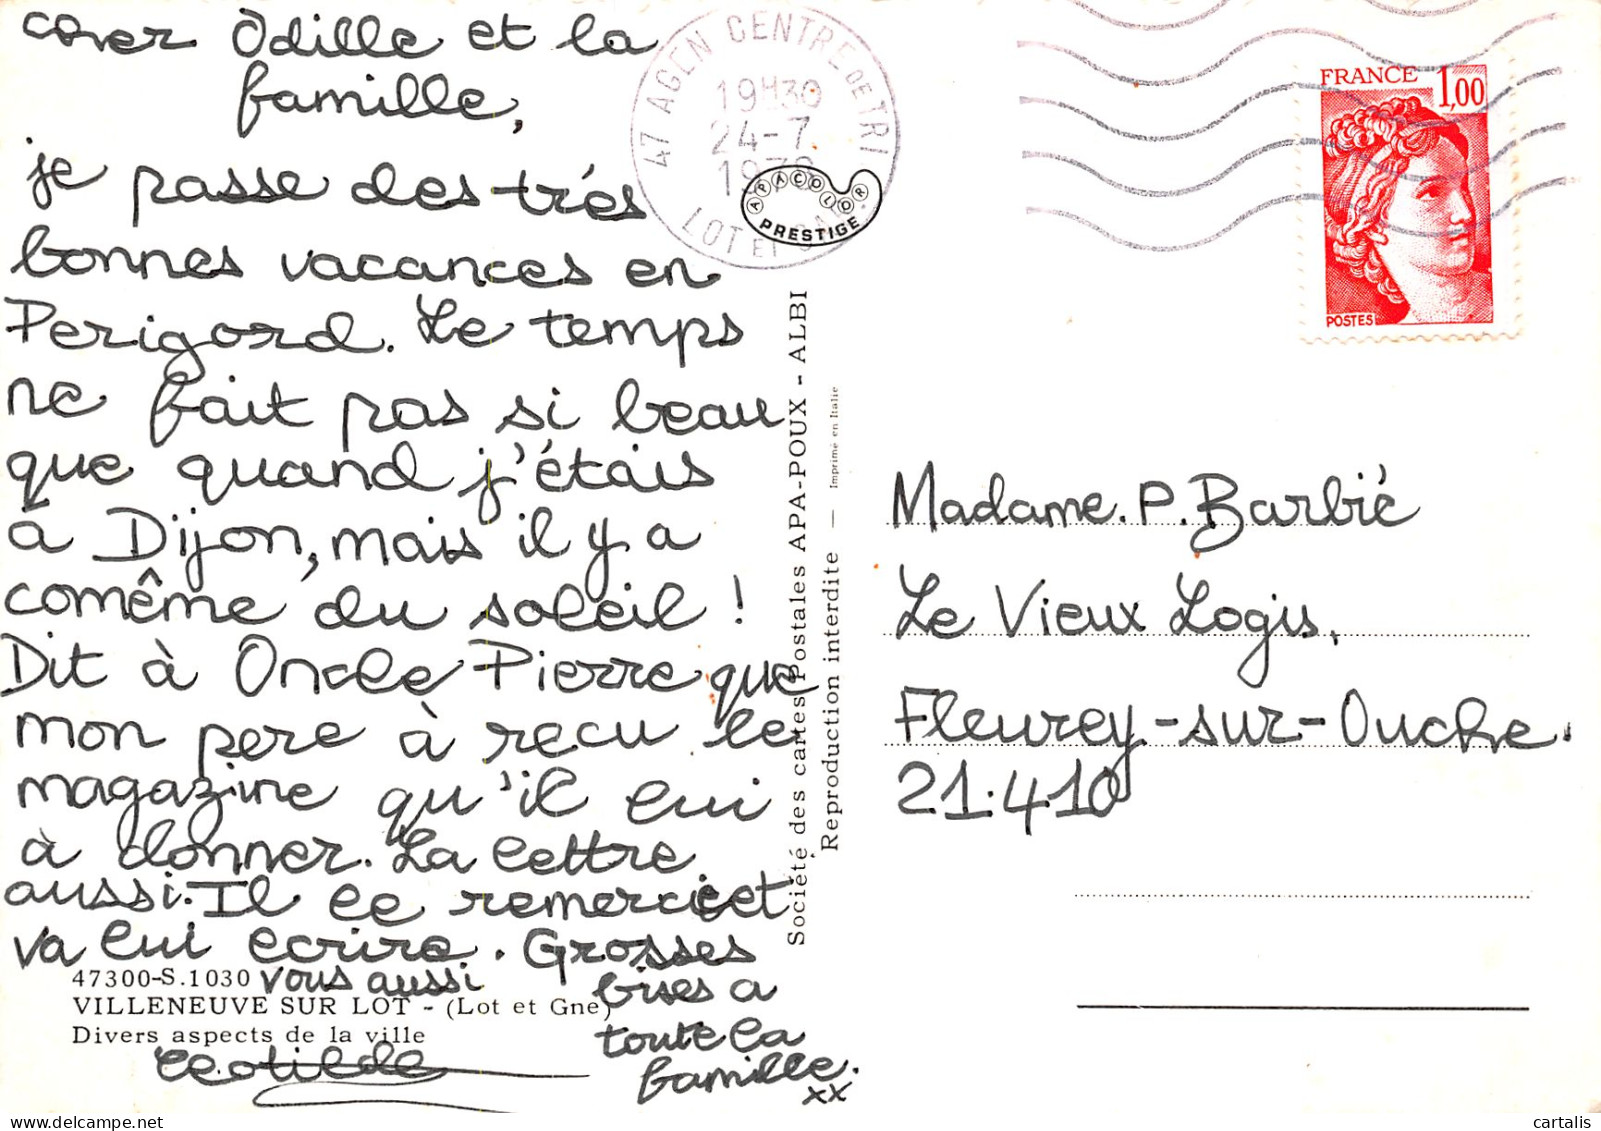 cher Odille et la
famille,
je passe des très
bonnes vacances en
Perigord. Le temps
ne fait pas si beau
que quand j'étais
à Dijon, mais il y a
comême du soleil !
Dit à Oncle Pierre que
mon pere à recu le
magazine qu'il lui
à donner. La lettre
aussi. Il le remercie et
va lui ecrire. Grosses
bises a
toute la
famille.
xx
vous aussi
Clotilde
47300-S.1030
VILLENEUVE SUR LOT - (Lot et Gne)
Divers aspects de la ville
Société des cartes Postales APA-POUX - ALBI
Reproduction interdite — Imprimé en Italie
47 AGEN CENTRE DE TRI
19H30
24-7
LOT ET
APACOLOR
PRESTIGE
FRANCE 1,00
POSTES
Madame. P. Barbié
Le Vieux Logis.
Fleurey-sur-Ouche.
21.410
cartalis